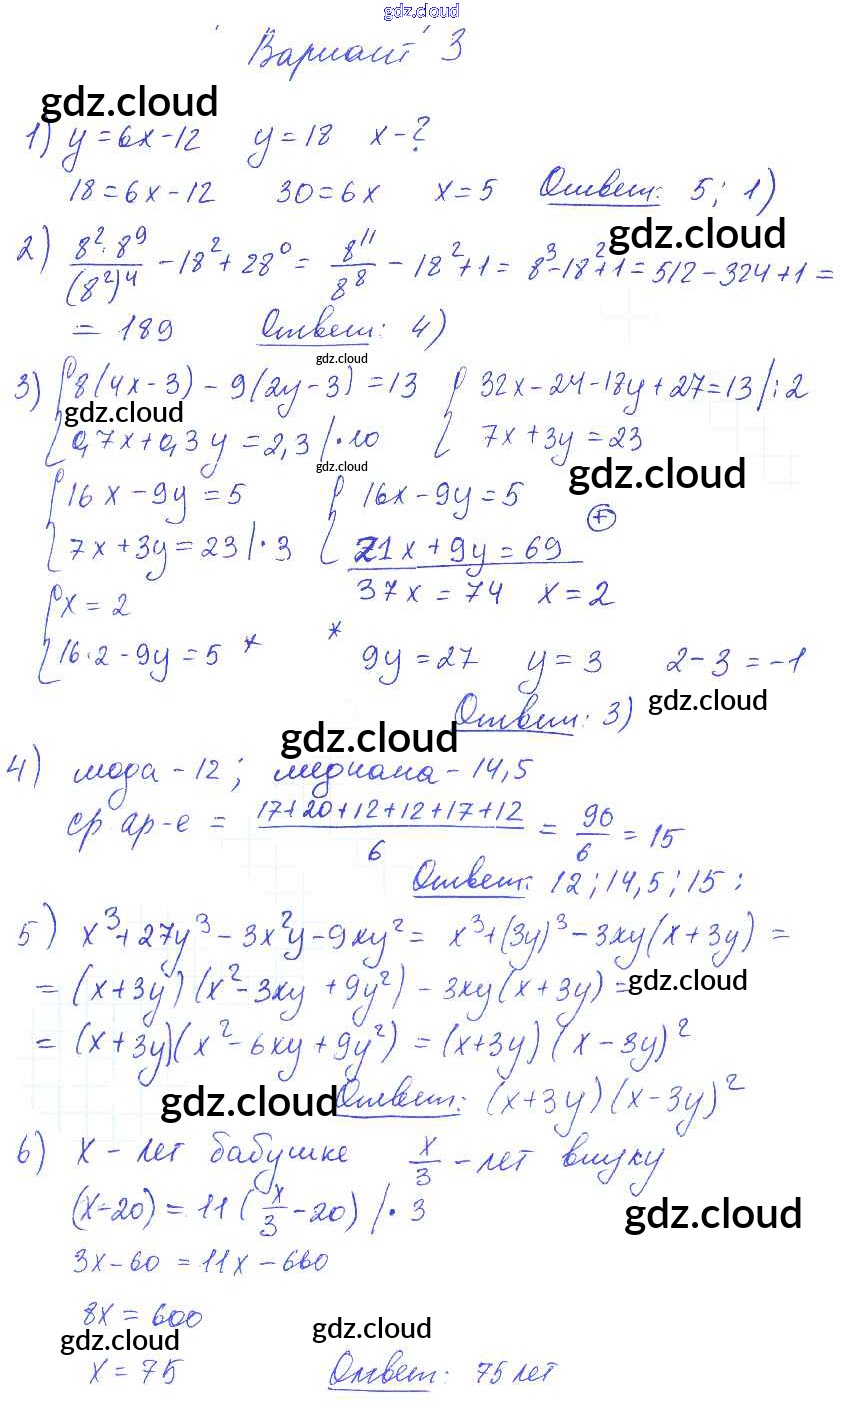 gdz.cloud
Вариант 3
gdz.cloud
1) y = 6x - 12 y = 18 x - ?
18 = 6x - 12 30 = 6x x = 5 Ответ: 5; 1)
gdz.cloud
2) (8² · 8⁹)/(8²)⁴ - 18² + 28⁰ = 8¹¹/8⁸ - 18² + 1 = 8³ - 18² + 1 = 512 - 324 + 1 =
= 189 Ответ: 4)
gdz.cloud
3) { 8(4x - 3) - 9(2y - 3) = 13 { 32x - 24 - 18y + 27 = 13 | : 2
gdz.cloud
0,7x + 0,3y = 2,3 | · 10 7x + 3y = 23
gdz.cloud gdz.cloud
{ 16x - 9y = 5 { 16x - 9y = 5 (+)
7x + 3y = 23 | · 3 21x + 9y = 69
37x = 74 x = 2
{ x = 2
16 · 2 - 9y = 5 * * 9y = 27 y = 3 2 - 3 = -1
Ответ: 3) gdz.cloud
gdz.cloud
4) мода - 12; медиана - 14,5
ср ар-е = (17 + 20 + 12 + 12 + 17 + 12)/6 = 90/6 = 15
Ответ: 12; 14,5; 15;
5) x³ + 27y³ - 3x²y - 9xy² = x³ + (3y)³ - 3xy(x + 3y) =
= (x + 3y)(x² - 3xy + 9y²) - 3xy(x + 3y) = gdz.cloud
= (x + 3y)(x² - 6xy + 9y²) = (x + 3y)(x - 3y)²
gdz.cloud Ответ: (x + 3y)(x - 3y)²
6) x - лет бабушке x/3 - лет внуку
(x - 20) = 11(x/3 - 20) | · 3 gdz.cloud
3x - 60 = 11x - 660
8x = 600
gdz.cloud gdz.cloud
x = 75 Ответ: 75 лет